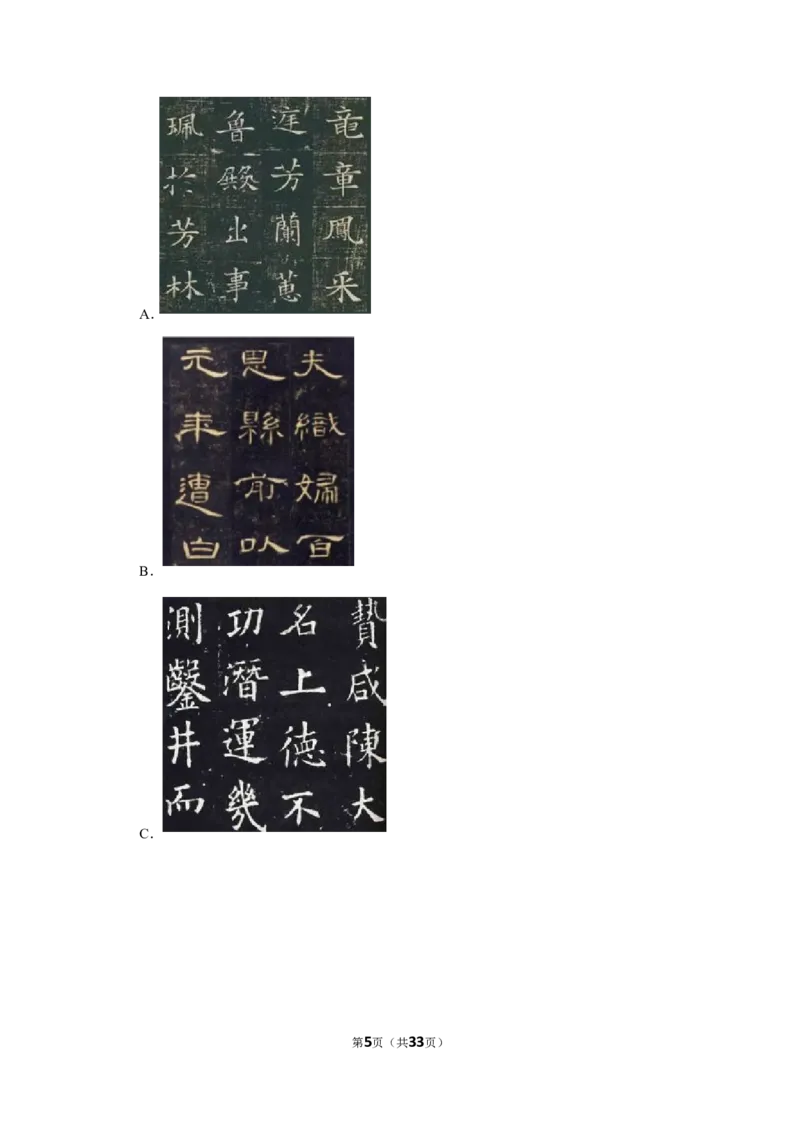 竜章鳳采
庭芳蘭蕙
魯殿之事
珮於芳林
A．
夫織婦百
思縣前以
元年遭白
B．
贄咸陳大
名上德不
功潛運幾
測鑿井而
C．
第5页（共33页）